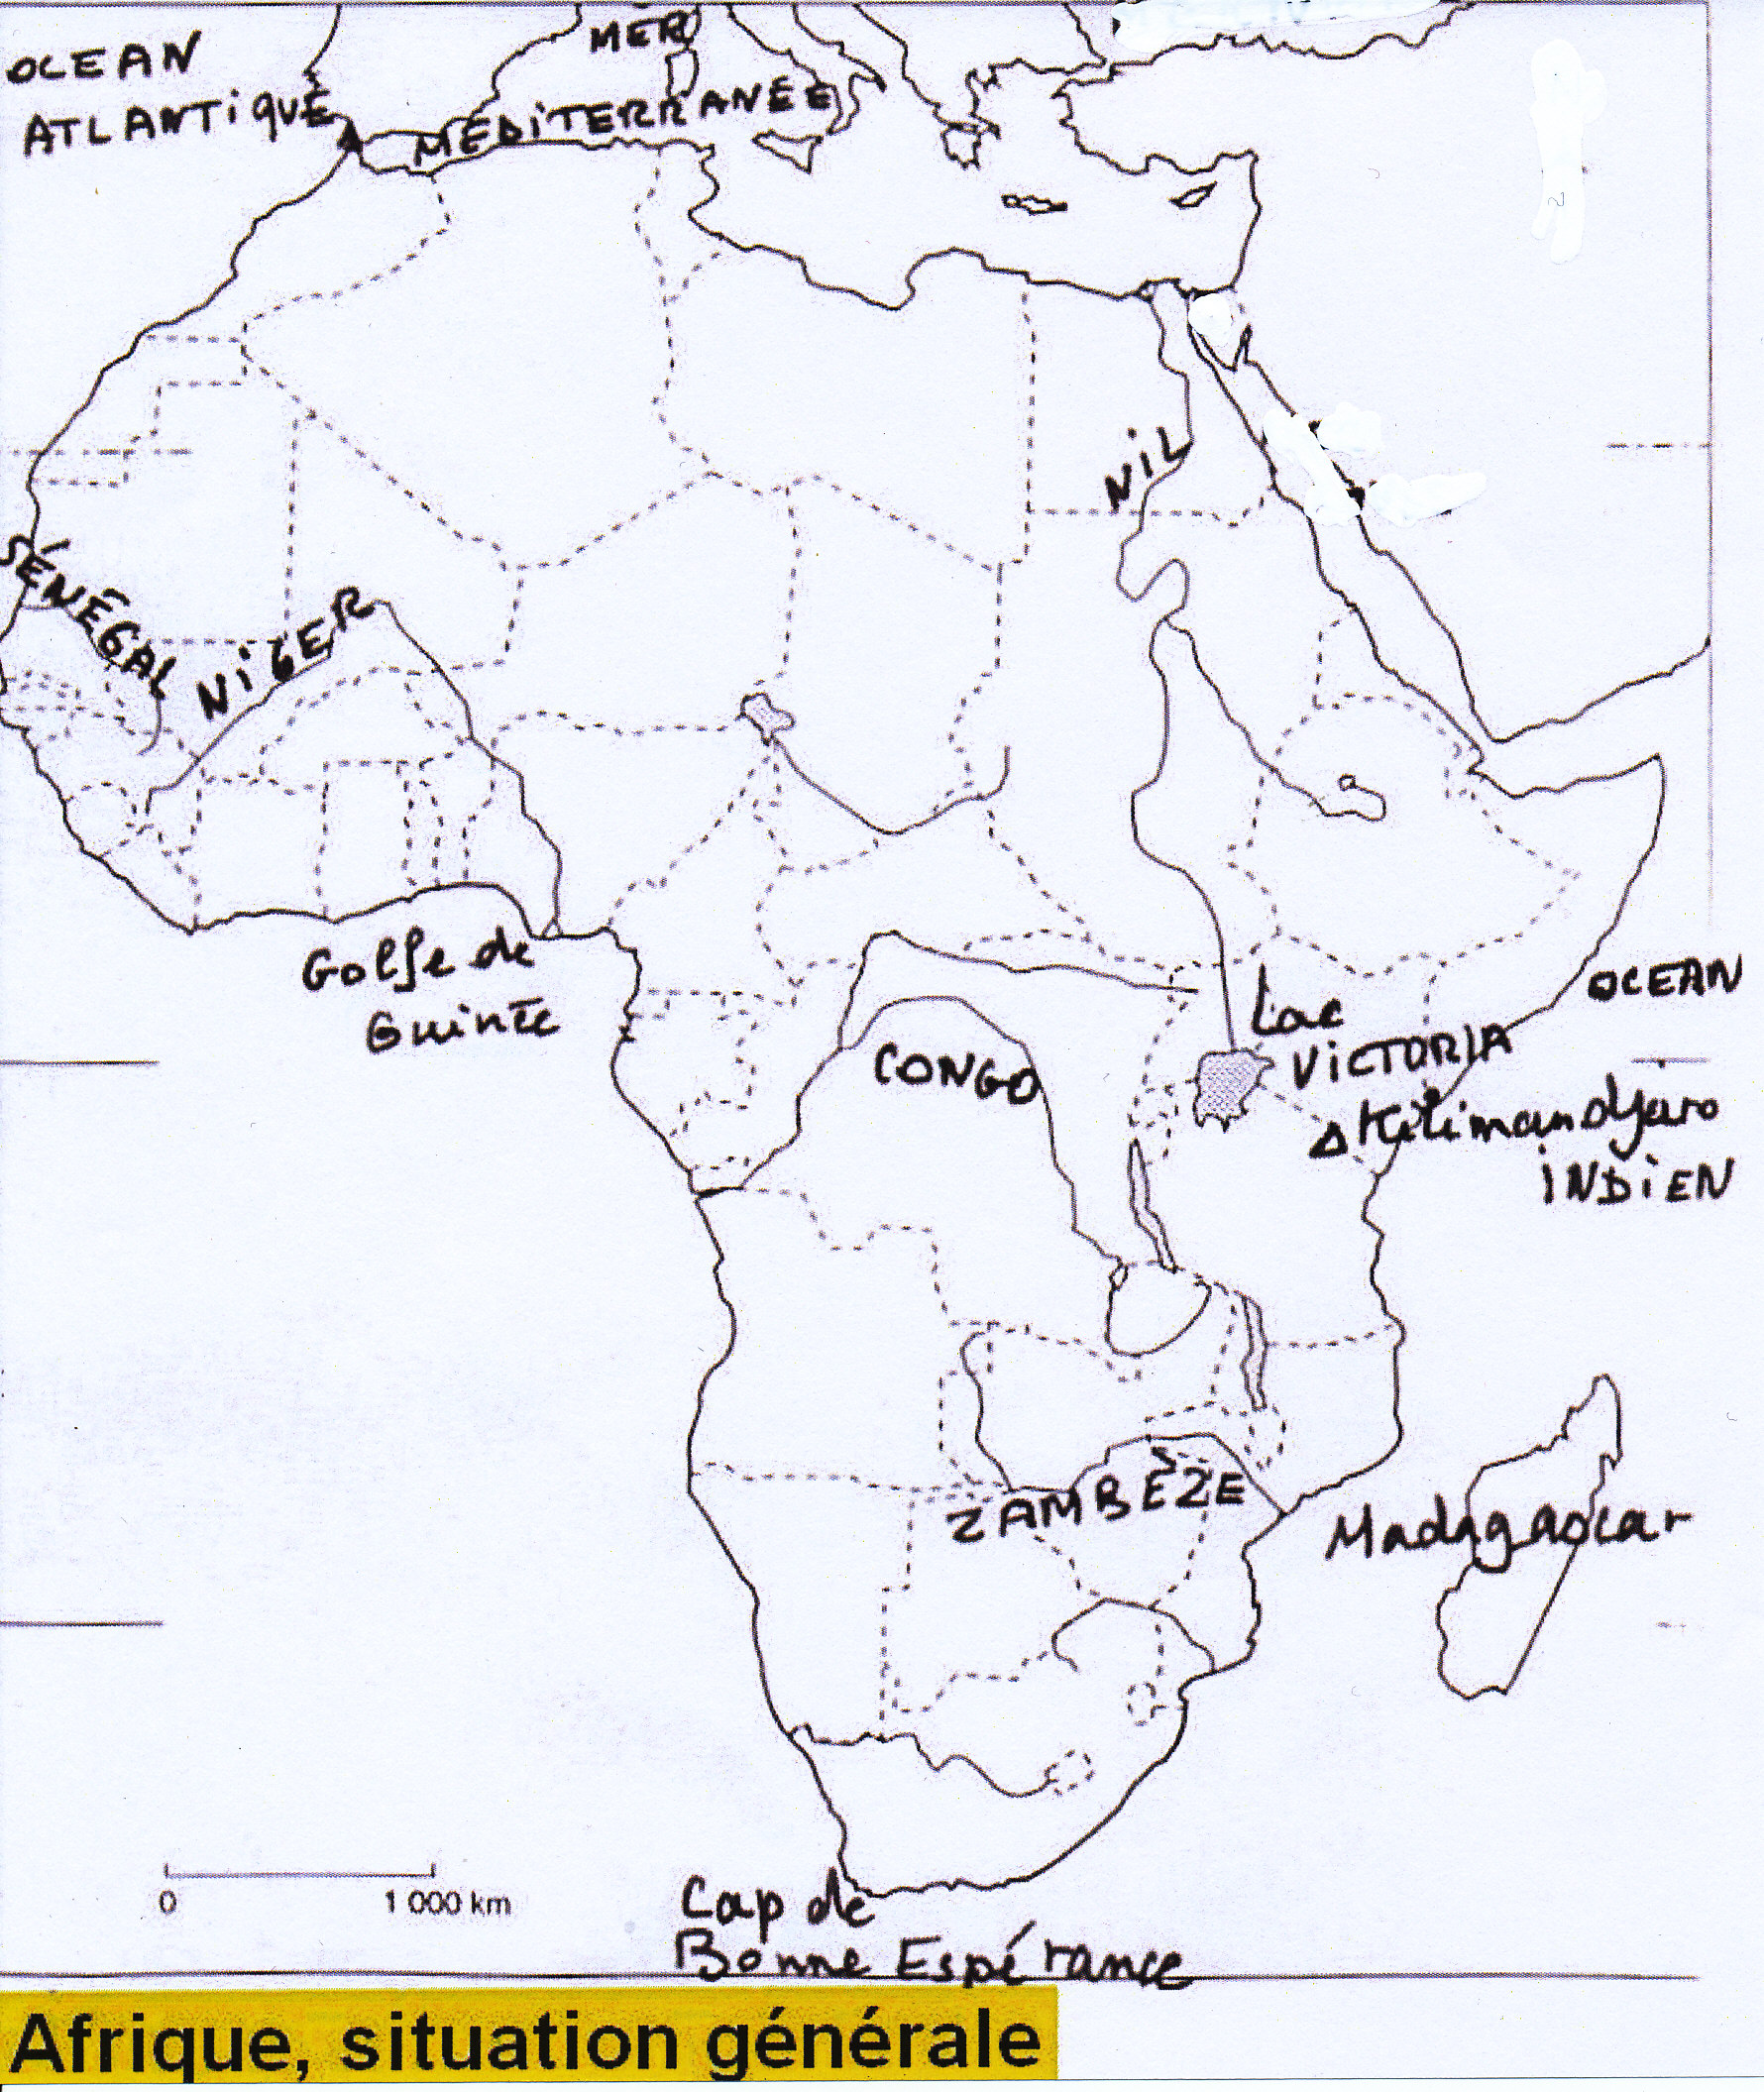 OCEAN
ATLANTIQUE
MER
MÉDITERRANÉE
NIL
SÉNÉGAL
NIGER
Golfe de
Guinée
CONGO
Lac
VICTORIA
OCEAN
INDIEN
Kilimandjaro
ZAMBÈZE
Madagascar
0 1 000 km
Cap de
Bonne Espérance
Afrique, situation générale